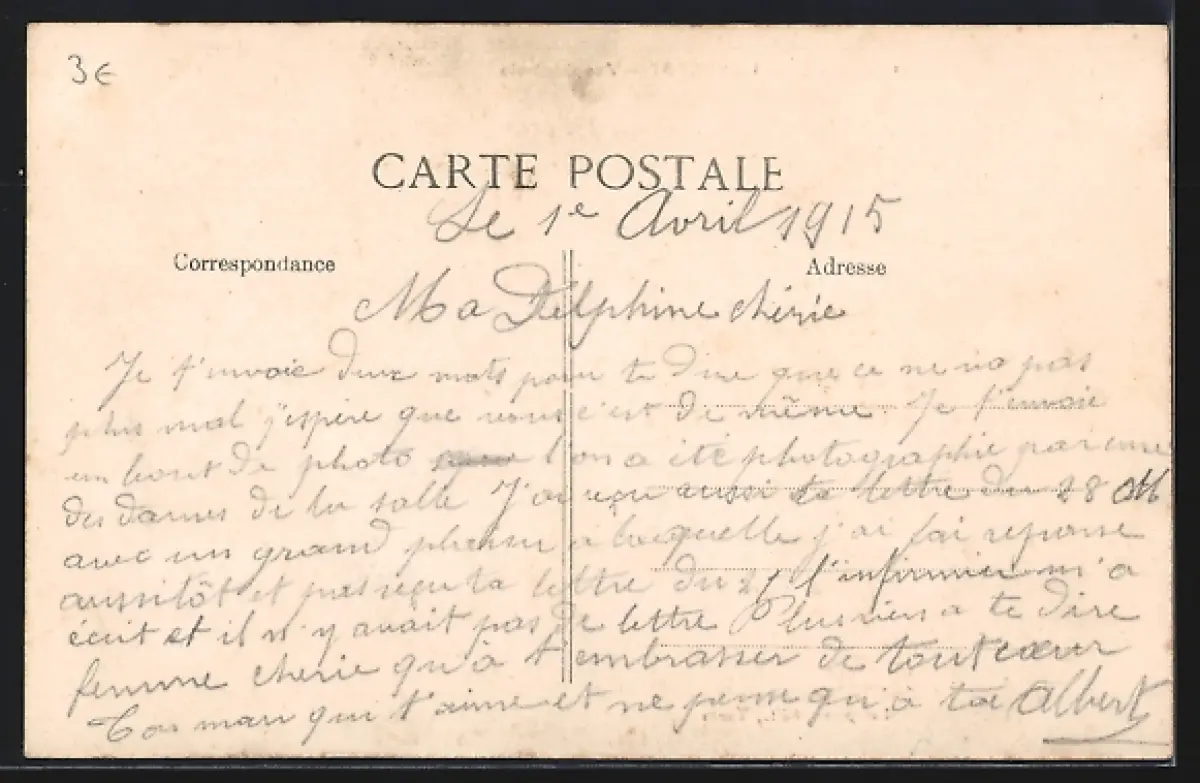 3€
CARTE POSTALE
Le 1e Avril 1915
Correspondance
Adresse
Ma Delphine chérie
Je t'envoie deux mots pour te dire que ce ne va pas
plus mal j'espère que vous c'est de même. Je t'envoie
un bout de photo l'on a été photographié par une
des dames de la salle J'ai reçu aussi ta lettre du 28
avec un grand plaisir a laquelle j'ai fai reponse
aussitôt et pas reçu ta lettre du 27 l'infirmier m'a
écrit et il n'y avait pas de lettre Plus rien a te dire
femme cherie qu'à t'embrasser de tout cœur
Ton mari qui t'aime et ne pense qu'à toi Albert